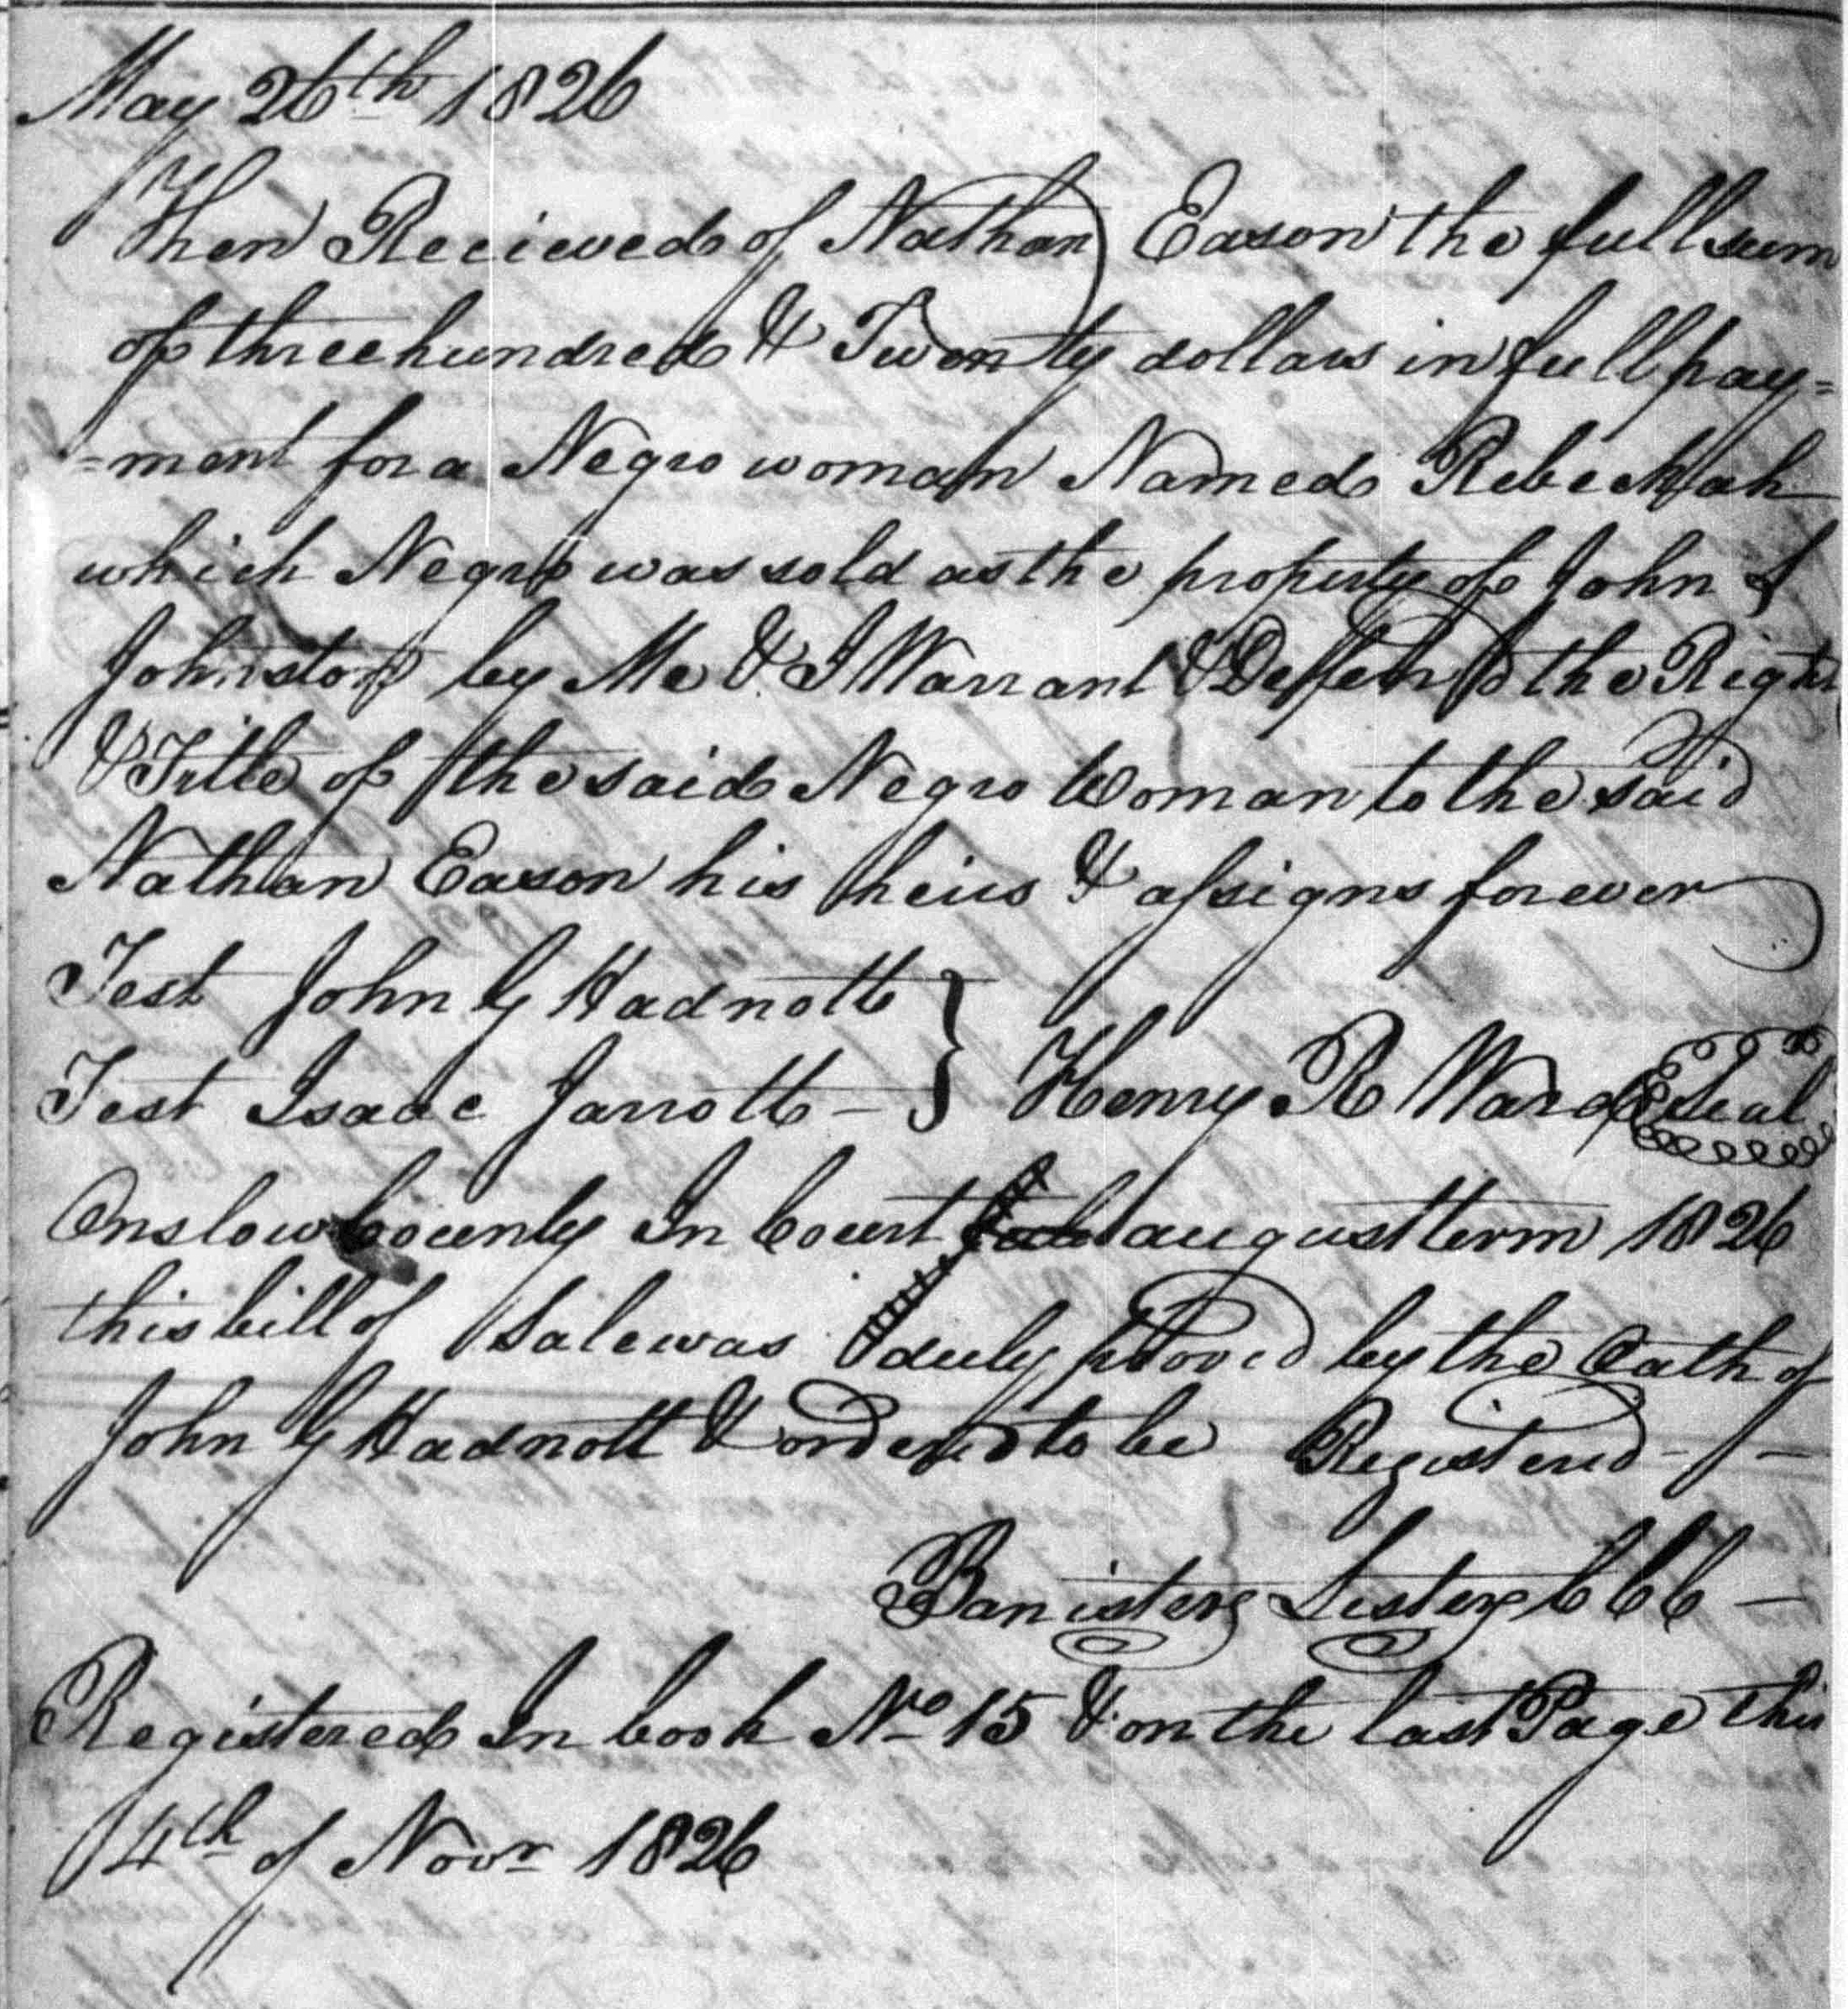 May 26th 1826
Then Recieved of Nathan Eason the full sum
of three hundred & Twenty dollars in full pay=
=ment for a Negro woman Named Rebeckah
which Negro was sold as the property of John
Johnston by Me & I Warrant & Deffend the Right
& Title of the said Negro Woman to the said
Nathan Eason his heirs & assigns forever
Test John G Hadnott
Test Isaac Jarrott - } Henry R Ward Seal
Onslow County In Court august term 1826
this bill of Sale was duly proved by the Oath of
John G Hadnott & ordered to be Registered - -
Banister Lester CCC -
Registered In book No 15 & on the last Page this
4th of Novr 1826